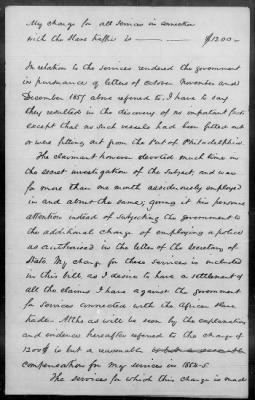 My charge for all services in connection
with the Slave traffic is — — $1200–
In relation to the services rendered the government
in pursuance of letters of October November and
December 1857 above referred to, I have to say
they resulted in the discovery of no important fact
except that no such vessels had been fitted out
or were fitting out from the Port of Philadelphia.
The claimant however devoted much time in
the secret investigation of the subject, and was
for more than one month assiduously employed
in and about the same; giving it his personal
attention instead of subjecting the government to
the additional charge of employing a police
as authorised in the letter of the Secretary of
State. My charge for these services is included
in this bill as I desire to have a settlement of
all the claims I have against the government
for services connected with the African Slave
trade. as will be seen by the explanation
and evidence hereafter referred to the charge of
1200$ is but a reasonable
compensation for my services in
The services for which this charge is made